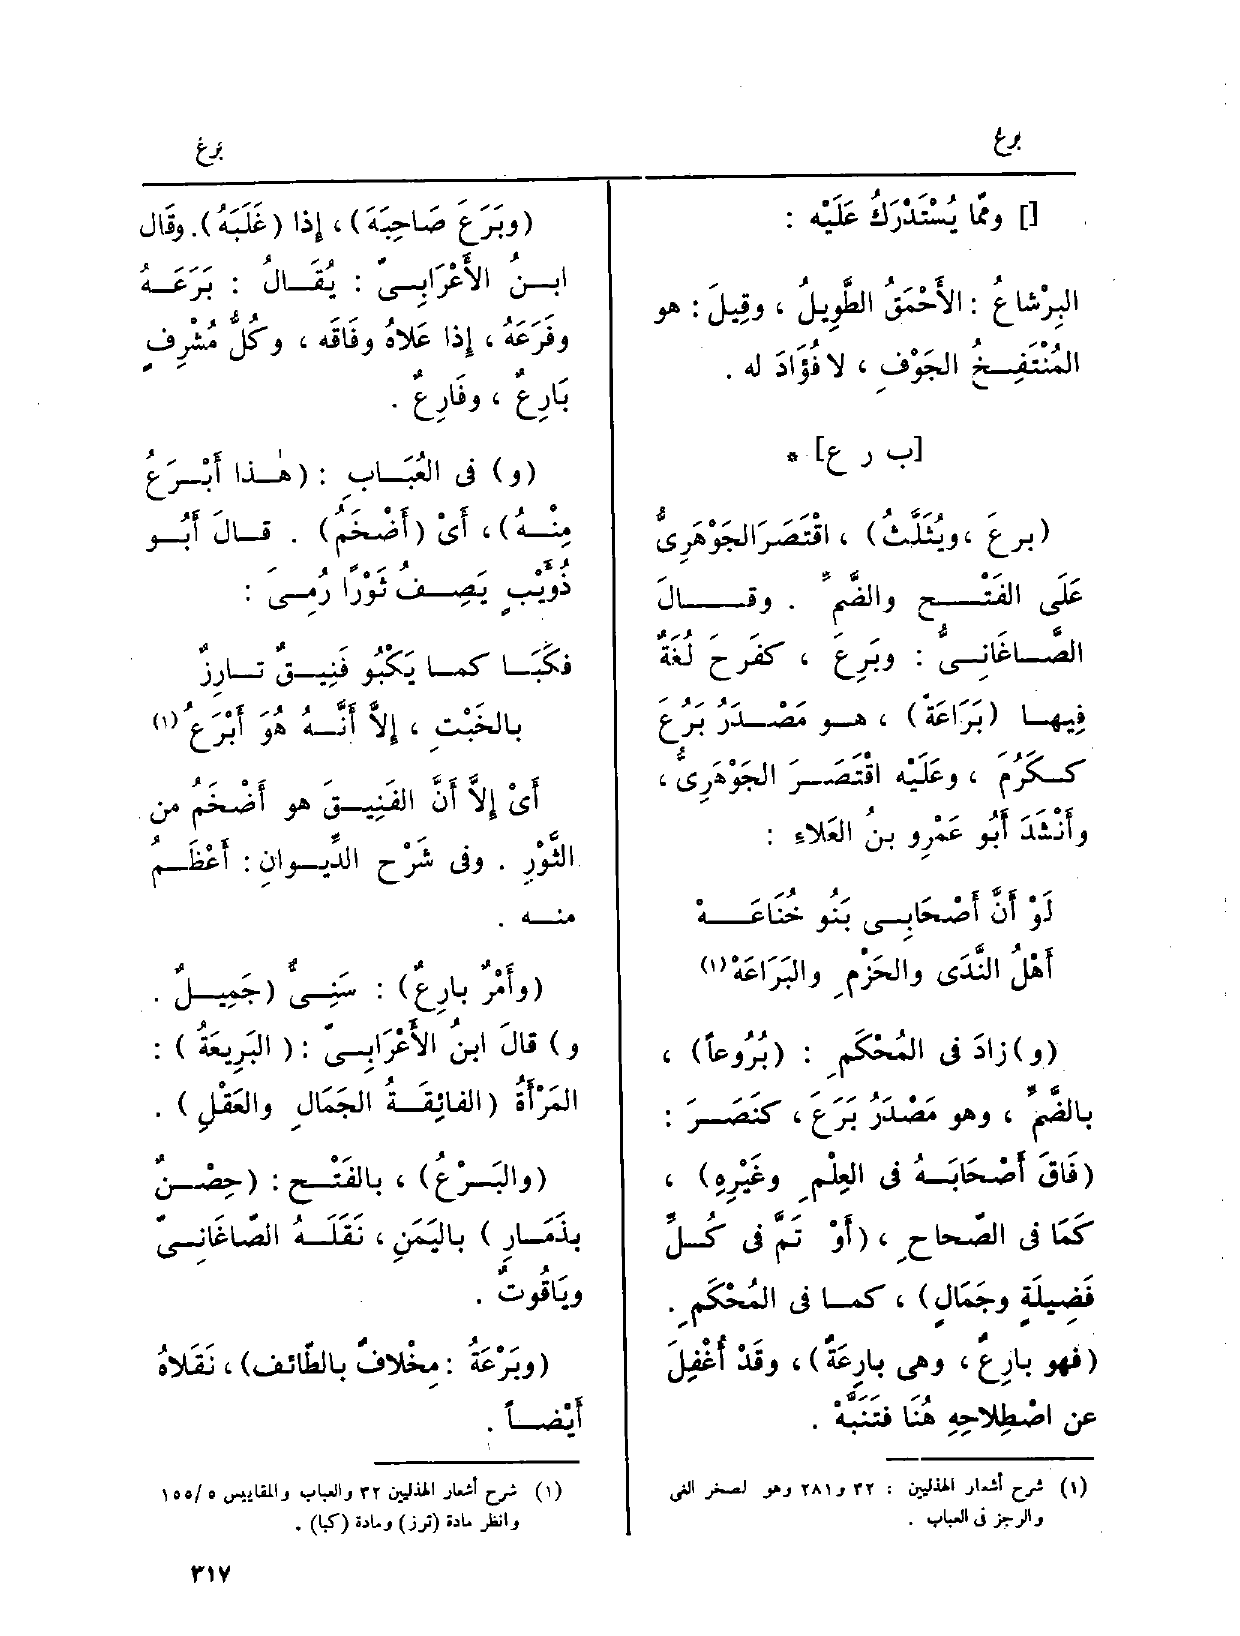 برع
[] ومّا يُسْتَدْرَكُ عَلَيْه :
البِرْشاعُ : الأَحْمَقُ الطَّوِيلُ ، وقِيلَ : هو
المُنْتَفِخُ الجَوْفِ ، لا فُؤَادَ له .
[ب ر ع] *
(برعَ ، ويُثَلَّثُ) ، اقْتَصَرَ الجَوْهَرِىُّ
عَلَى الفَتْحِ والضَّمِّ . وقالَ
الصّاغَانِىُّ : وبَرِعَ ، كفَرِحَ لُغَةٌ
فِيها (بَرَاعَةً) ، هو مَصْدَرُ بَرُعَ
ككَرُمَ ، وعَلَيْه اقْتَصَرَ الجَوْهَرِىُّ ،
وأَنْشَدَ أَبُو عَمْرِو بنُ العَلاءِ :
لَوْ أَنَّ أَصْحَابِى بَنُو خُنَاعَهْ
أَهْلُ النَّدَى والحَزْمِ والبَرَاعَهْ (١)
(و) زادَ فى المُحْكَمِ : (بُرُوعاً) ،
بالضَّمِّ ، وهو مَصْدَرُ بَرَعَ ، كنَصَرَ :
(فَاقَ أَصْحَابَهُ فى العِلْمِ وغَيْرِهِ) ،
كَمَا فى الصّحاحِ ، (أَوْ تَمَّ فى كُلِّ
فَضِيلَةٍ وجَمَالٍ) ، كما فى المُحْكَمِ .
(فهو بارِعٌ ، وهى بارِعَةٌ) ، وقَدْ أَغْفِلَ
عن اصْطِلاحِهِ هُنَا فتَنَبَّهْ .
(١) شرح أشعار الهذليين : ٣٢ و ٢٨١ وهو لصخر الغى
والرجز فى العباب .
برع
(وبَرَعَ صَاحِبَهُ) ، إذا (غَلَبَهُ) . وقَال
ابنُ الأَعْرَابِىِّ : يُقَالُ : بَرَعَهُ
وفَرَعَهُ ، إذا عَلاهُ وفَاقَه ، وكُلُّ مُشْرِفٍ
بَارِعٌ ، وفَارِعٌ .
(و) فى العُبَابِ : (هٰذا أَبْرَعُ
مِنْهُ) ، أَىْ (أَضْخَمُ) . قالَ أَبُو
ذُوَيْبٍ يَصِفُ ثَوْرًا رُمِىَ :
فكَبَا كما يَكْبُو فَنِيقٌ تارِزٌ
بالخَبْتِ ، إِلاَّ أَنَّهُ هُوَ أَبْرَعُ (١)
أَىْ إِلاَّ أَنَّ الفَنِيقَ هو أَضْخَمُ من
الثَّوْرِ . وفى شَرْحِ الدِّيوانِ : أَعْظَمُ
منه .
(وأَمْرٌ بارِعٌ) : سَنِىٌّ (جَمِيلٌ .
و) قالَ ابنُ الأَعْرَابِىّ : (البَرِيعَةُ) :
المَرْأَةُ (الفائِقَةُ الجَمَالِ والعَقْلِ) .
(والبَرْعُ) ، بالفَتْحِ : (حِصْنٌ
بذَمَارِ) بالْيَمَنِ ، نَقَلَهُ الصّاغَانِىُّ
ويَاقُوتٌ .
(وبَرْعَةُ : مِخْلافٌ بالطّائف) ، نَقَلاهُ
أَيْضاً .
(١) شرح أشعار الهذليين ٣٢ والعباب والمقاييس ٥ / ١٥٥
وانظر مادة (ترز) ومادة (كبا) .
٣١٧